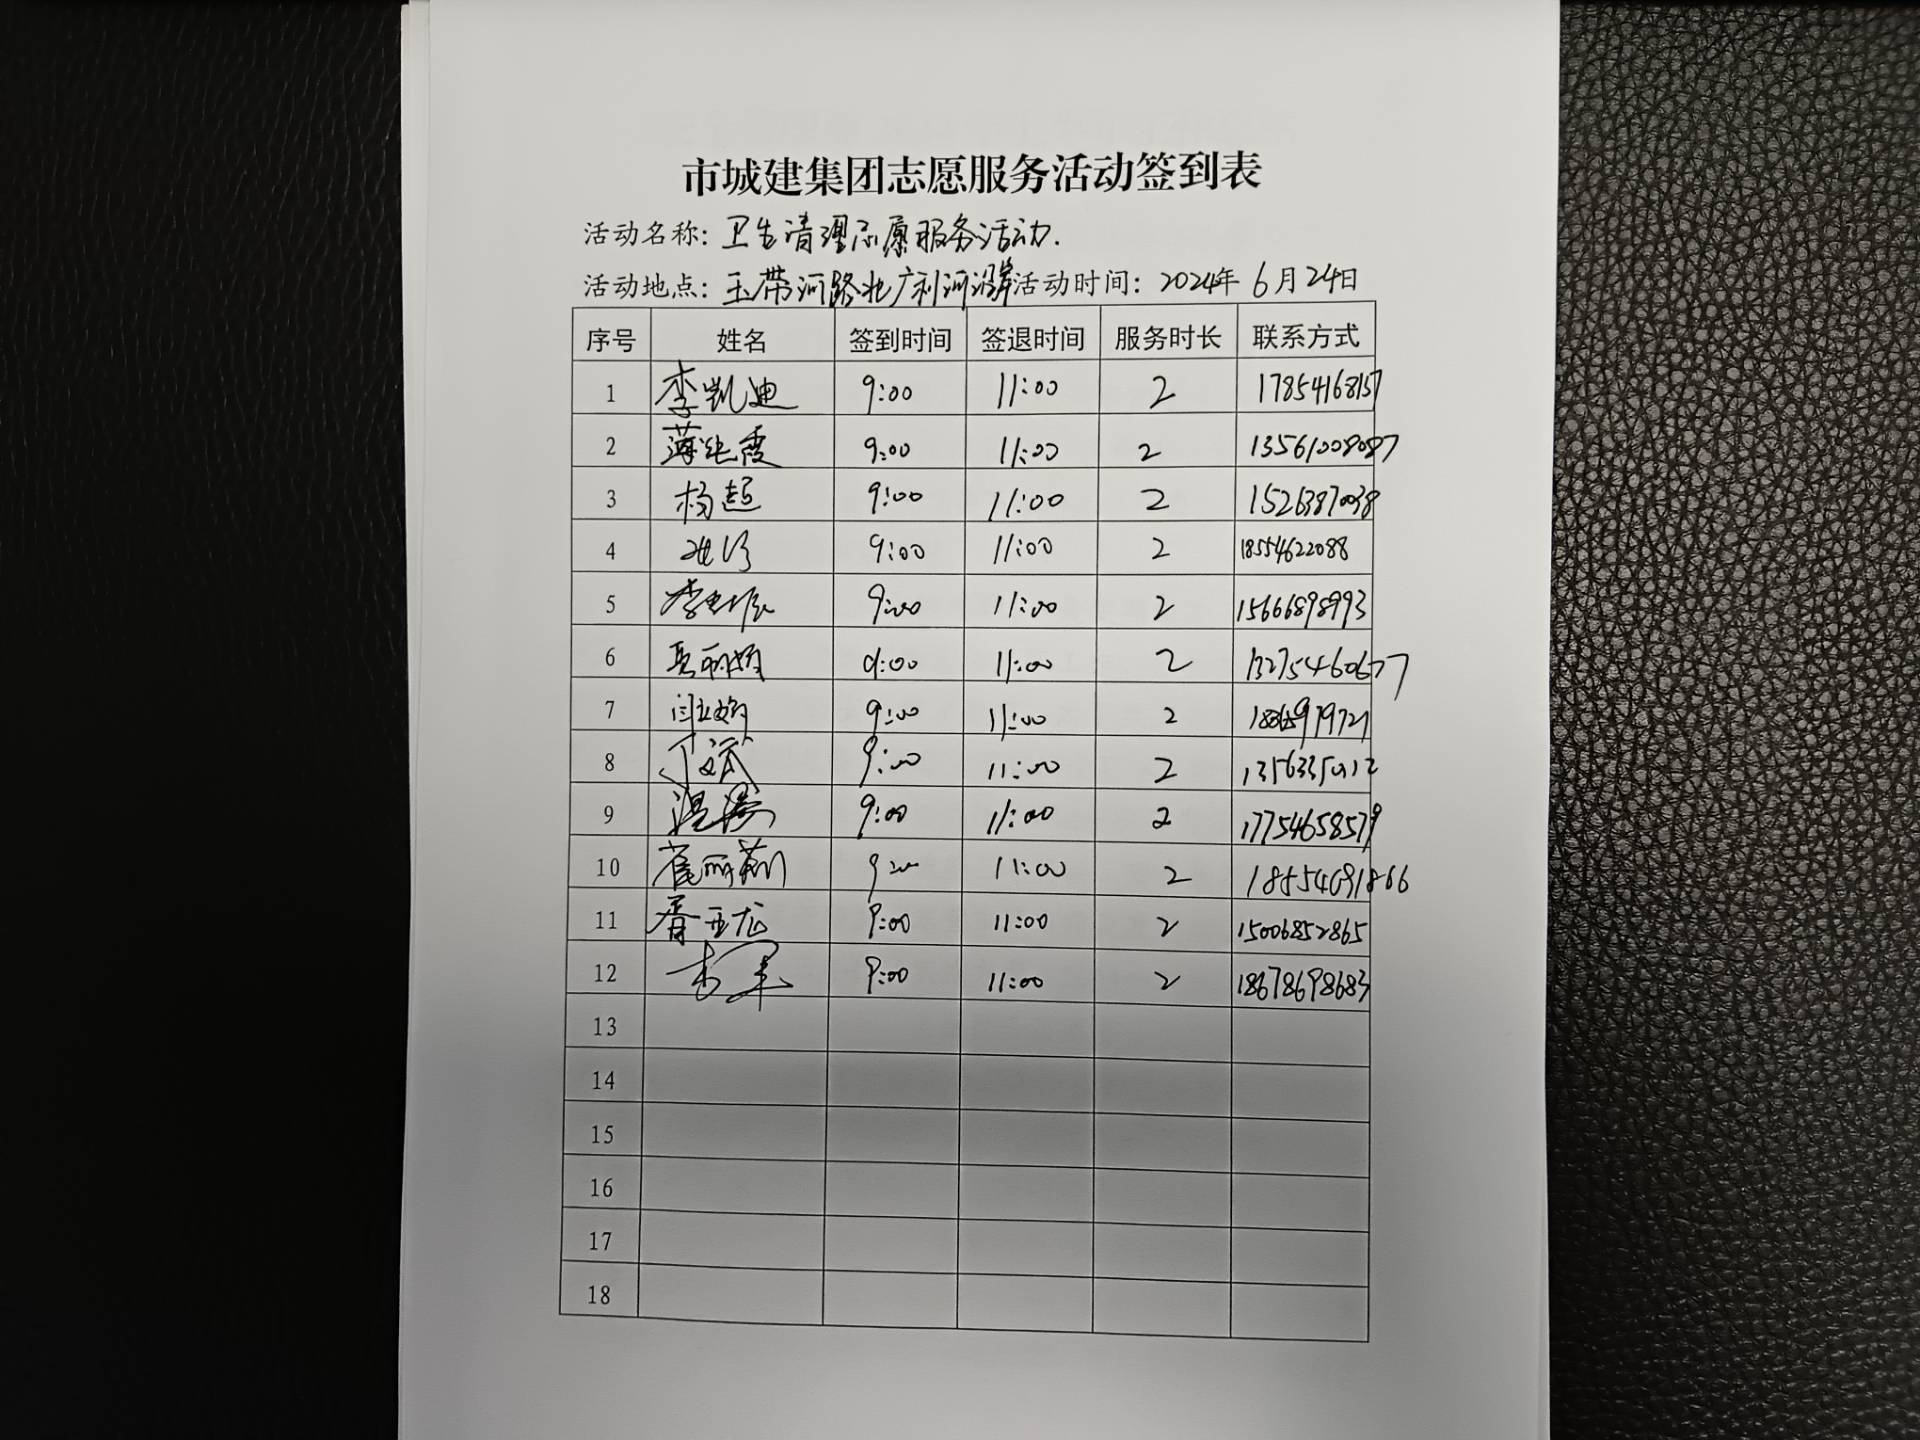 市城建集团志愿服务活动签到表
活动名称: 卫生清理志愿服务活动.
活动地点: 玉带河路北广利河沿岸 活动时间: 2024年 6月24日
序号 姓名 签到时间 签退时间 服务时长 联系方式
1 李凯迪 9:00 11:00 2 17854168157
2 薄纯霞 9:00 11:00 2 13561008087
3 杨超 9:00 11:00 2 15263871038
4 9:00 11:00 2 18554622088
5 9:00 11:00 2 15666898993
6 9:00 11:00 2 13275460677
7 9:00 11:00 2
8 丁文斌 9:00 11:00 2
9 温涛 9:00 11:00 2 17754658579
10 崔丽莉 9:00 11:00 2 18554691866
11 胥亚龙 9:00 11:00 2 15006852865
12 李军 9:00 11:00 2 18678698683
13
14
15
16
17
18